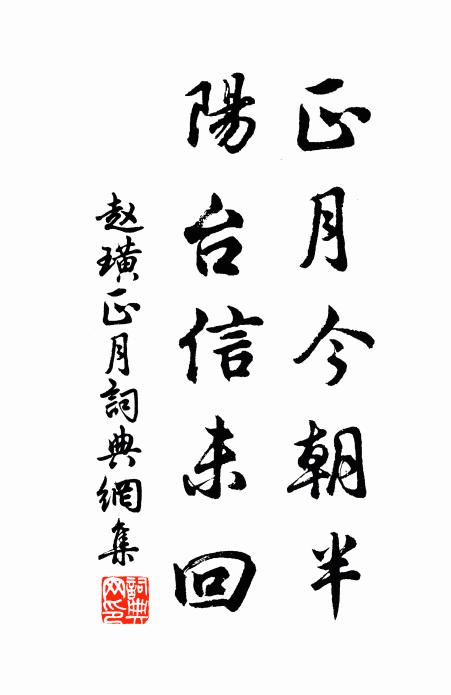 正月今朝半
陽台信未回
赵璜正月詞典網集
詞典網印